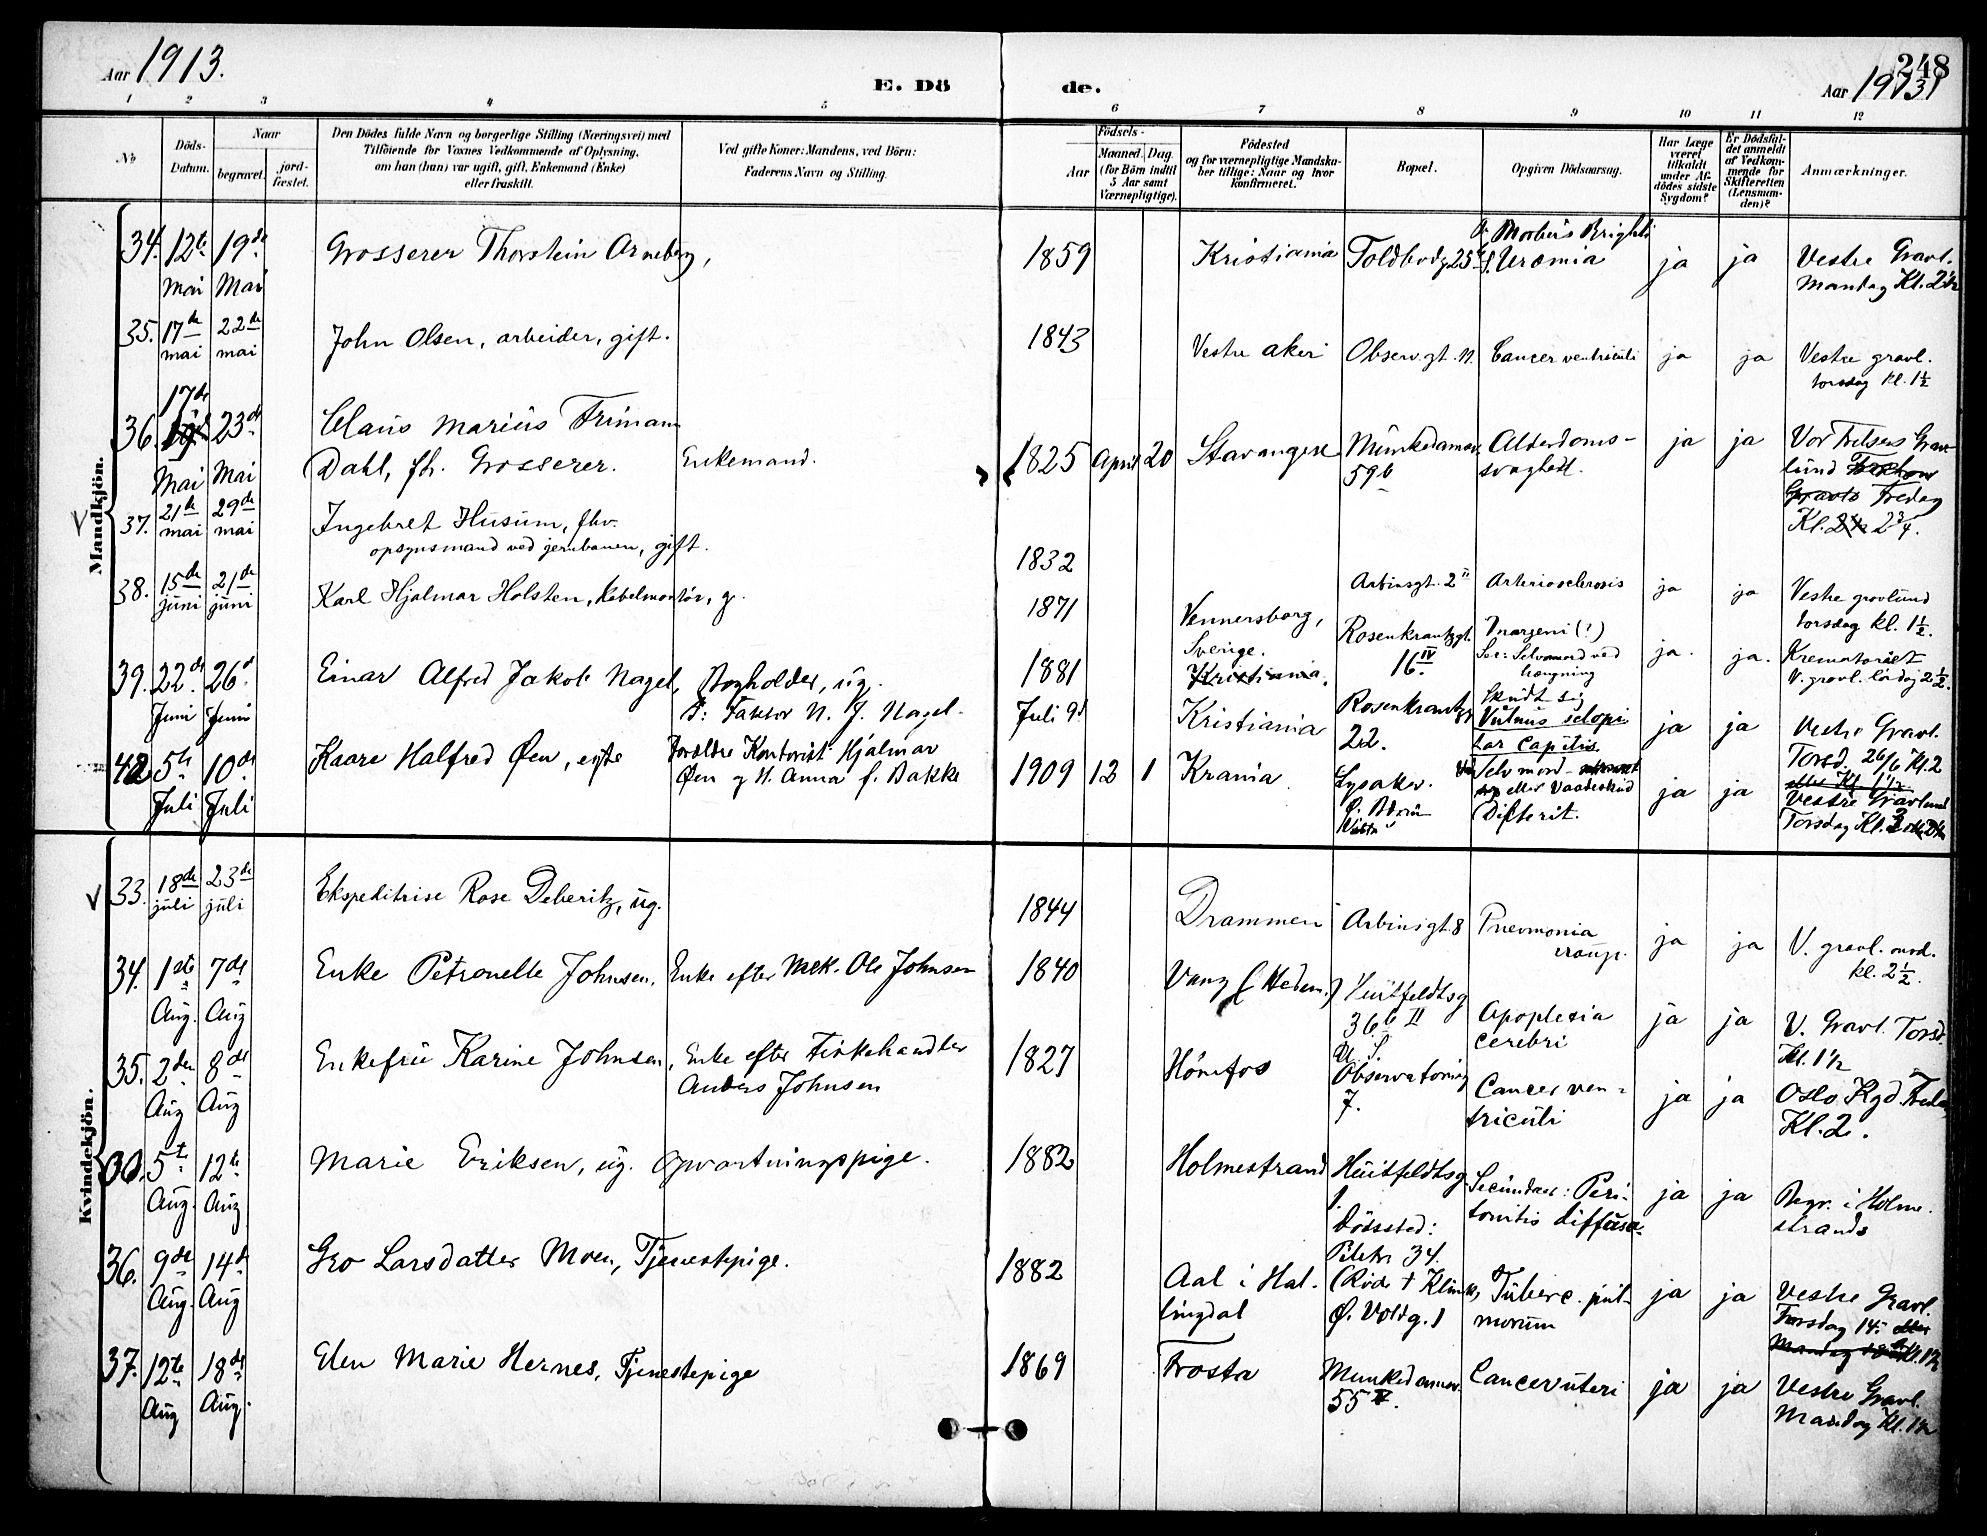 Aar 1913.
E. Dö
de.
248
Aar 1913
1 2 3 4 5 6 7 8 9 10 11 12
No
Döds-
Datum.
Naar
begravet.
jord-
fæstet.
Den Dödes fulde Navn og borgerlige Stilling (Næringsvei) med
Tilföiende for Voxnes Vedkommende af Oplysning,
om han (hun) var ugift, gift, Enkemand (Enke)
eller fraskilt.
Ved gifte Koner: Mandens, ved Börn:
Faderens Navn og Stilling.
Födsels-
Aar
Maaned. Dag.
(for Börn indtil
5 Aar samt
Værnepligtige).
Födested
og for værnepligtige Mandska-
ber tillige: Naar og hvor
konfirmeret.
Bopæl.
Opgiven Dödsaarsag.
Har Læge
været
tilkaldt
under Af-
dödes sidste
Sygdom?
Er Dödsfal-
det anmeldt
af Vedkom-
mende for
Skifteretten
(Lensman-
den)?
Anmærkninger.
Mandkjön.
34. 12te Mai 19de Mai
Grosserer Thorstein Arneberg,
1859
Kristiania
Toldbodg. 25
Morbus Brighti
Uræmia
ja
ja
Vestre Gravl.
Mandag Kl. 2 1/2
35. 17de mai 22de mai
John Olsen, arbeider, gift.
1843
Vestre aker
Observ.gt. 11.
Cancer ventriculi
ja
ja
Vestre gravl.
torsdag kl. 1 1/2
36. 17de Mai 23de Mai
Claus Marius Friman
Dahl, fh. Grosserer.
Enkemand.
1825 April 20
Stavanger
Munkedamsv.
59b
Alderdoms-
svaghed.
ja
ja
Vor Frelsers Grav-
lund
Fredag
Kl. 2 3/4.
37. 21de mai 29de mai
Ingebret Husum, fhv.
opsynsmand ved jernbanen, gift.
1832
Arbinsgt. 2 II
Arteriosclerosis
ja
ja
Vestre gravlund
torsdag kl. 1 1/2.
38. 15de juni 21de juni
Karl Hjalmar Holsten, Kabelmontör, g.
1871
Vennersborg,
Sverige.
Rosenkrantzgt.
16 IV
Selvmord ved
hængning
ja.
ja.
Krematoriet
V. gravl. lördag 2 1/2.
39. 22de Juni 26de Juni
Einar Alfred Jakob Nagel, Bogholder, ug.
F: Faktor N. J. Nagel.
1881
Juli 9d
Kristiania,
Kristiania
Rosenkrantzg.
22.
Skudt sig
Vulnus sclopi
tar capitis.
Selvmord
eller Vaadeskud
ja
ja
Vestre Gravl.
Torsd. 26/6 Kl. 2
42 5te Juli 10de Juli
Kaare Halfred Øen, ægte
Forældre Kontorist Hjalmar
Øen og H. Anna f. Bakke
1909 12 1
Krania
Lysaker.
Ø. Bærum
Difterit.
ja
ja
Vestre Gravlund
Torsdag Kl. 2
Kvindekjön.
33. 18de juli 23de juli
Ekspeditrise Rose Deberitz, ug.
1844
Drammen
Arbinsgt. 8
Pneumonia
croup.
ja
ja
V. gravl. ond.
kl. 2 1/2.
34. 1ste Aug. 7de Aug
Enke Petronelle Johnsen,
Enke efter Mek. Ole Johnsen
1840
Vang (Hedem.)
Huitfeldtsg
36b II
Apoplexia
cerebri
ja
ja
V. Gravl. Torsd.
Kl. 1 1/2
35. 2den Aug 8de Aug
Enkefru Karine Johnsen,
Enke efter Fiskehandler
Anders Johnsen
1827
Hönefos
Observatoriegt
7.
Cancer ven-
triculi
ja
ja
Oslo Kgd. Fredag
Kl. 2.
5te Aug. 12te Aug
Marie Eriksen, ug. Opvartningspige.
1882
Holmestrand
Huitfeldtsg
Dödssted:
Pilestr 34.
Secundær: Peri-
tonitis diffusa.
ja
ja
Begr. i Holme-
strand
36. 9de Aug. 14de Aug
Gro Larsdatter Moen, Tjenestepige.
1882
Aal i Hal-
lingdal
(Röde + Klinik,
Ø. Voldg. 1
Tuberc. pul-
monum
ja
ja
Vestre Gravl.
Torsdag 14.
Kl. 1 1/2
37. 12te Aug 18de Aug.
Elen Marie Hernes, Tjenestepige
1869
Frosta
Munkedamsv.
55 V.
Cancer uteri
ja
ja
Vestre Gravl.
Mandag Kl. 1 1/2